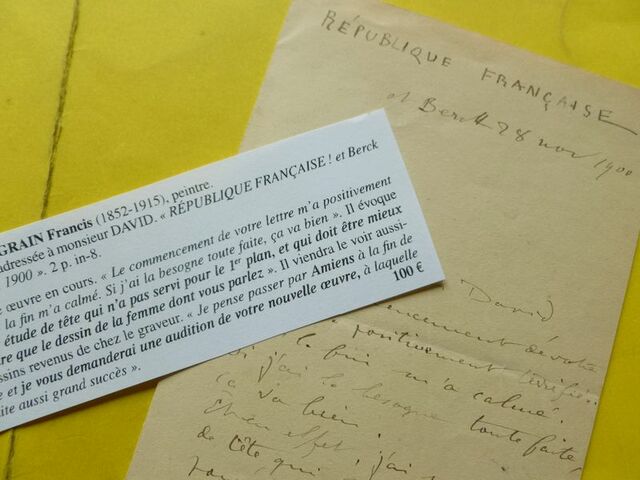 RÉPUBLIQUE FRANÇAISE
et Berck 28 nov 1900
David
la fin m'a calmé.
Si j'ai la besogne toute faite,
ça va bien.
Et en effet, j'ai
de tête qui
GRAIN Francis (1852-1915), peintre.
adressée à monsieur DAVID. « RÉPUBLIQUE FRANÇAISE ! et Berck
1900 ». 2 p. in-8.
œuvre en cours. « Le commencement de votre lettre m'a positivement
la fin m'a calmé. Si j'ai la besogne toute faite, ça va bien ». Il évoque
étude de tête qui n'a pas servi pour le 1er plan, et qui doit être mieux
que le dessin de la femme dont vous parlez ». Il viendra le voir aussi-
revenus de chez le graveur. « Je pense passer par Amiens à la fin de
et je vous demanderai une audition de votre nouvelle œuvre, à laquelle
aussi grand succès ».
100 €